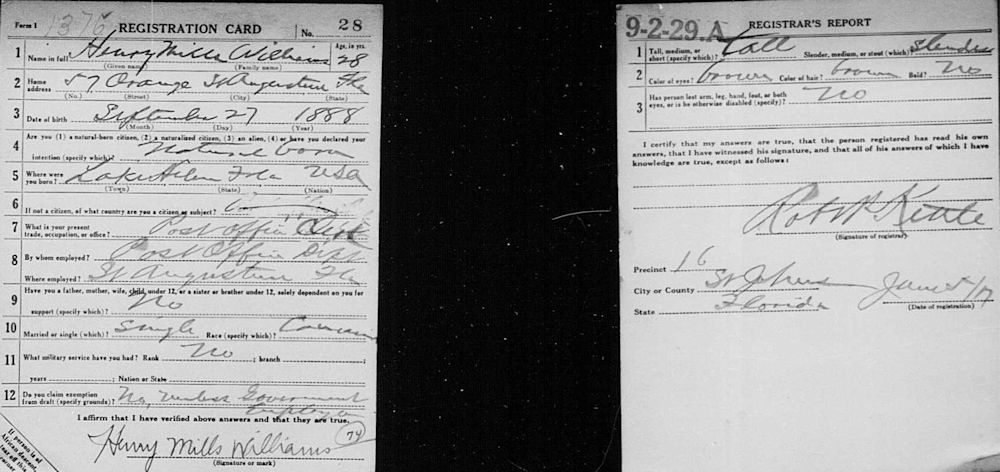 Form 1 1376 REGISTRATION CARD No. 28
1 Name in full Henry Mills Williams Age, in yrs. 28
(Given name) (Family name)
2 Home address 57 Orange St Augustine Fla
(No.) (Street) (City) (State)
3 Date of birth September 27 1888
(Month) (Day) (Year)
4 Are you (1) a natural-born citizen, (2) a naturalized citizen, (3) an alien, (4) or have you declared your
intention (specify which)? Natural born
5 Where were you born? Lake Helen Fla USA
(Town) (State) (Nation)
6 If not a citizen, of what country are you a citizen or subject?
7 What is your present trade, occupation, or office? Post Office Clerk
8 By whom employed? Post Office Dept
Where employed? St Augustine Fla
9 Have you a father, mother, wife, child under 12, or a sister or brother under 12, solely dependent on you for
support (specify which)? No
10 Married or single (which)? Single Race (specify which)? Caucasian
11 What military service have you had? Rank No ; branch ;
years ; Nation or State
12 Do you claim exemption from draft (specify grounds)? No, unless Government
Employee
I affirm that I have verified above answers and that they are true.
Henry Mills Williams 74
(Signature or mark)
If person is of
African descent,
tear off this
corner
9-2-29.A REGISTRAR'S REPORT
1 Tall, medium, or short (specify which)? Tall Slender, medium, or stout (which)? Slender
2 Color of eyes? brown Color of hair? brown Bald? No
3 Has person lost arm, leg, hand, foot, or both
eyes, or is he otherwise disabled (specify)? No
I certify that my answers are true, that the person registered has read his own
answers, that I have witnessed his signature, and that all of his answers of which I have
knowledge are true, except as follows:
(Signature of registrar)
Precinct 16
City or County St Johns
State Florida June 5/17
(Date of registration)